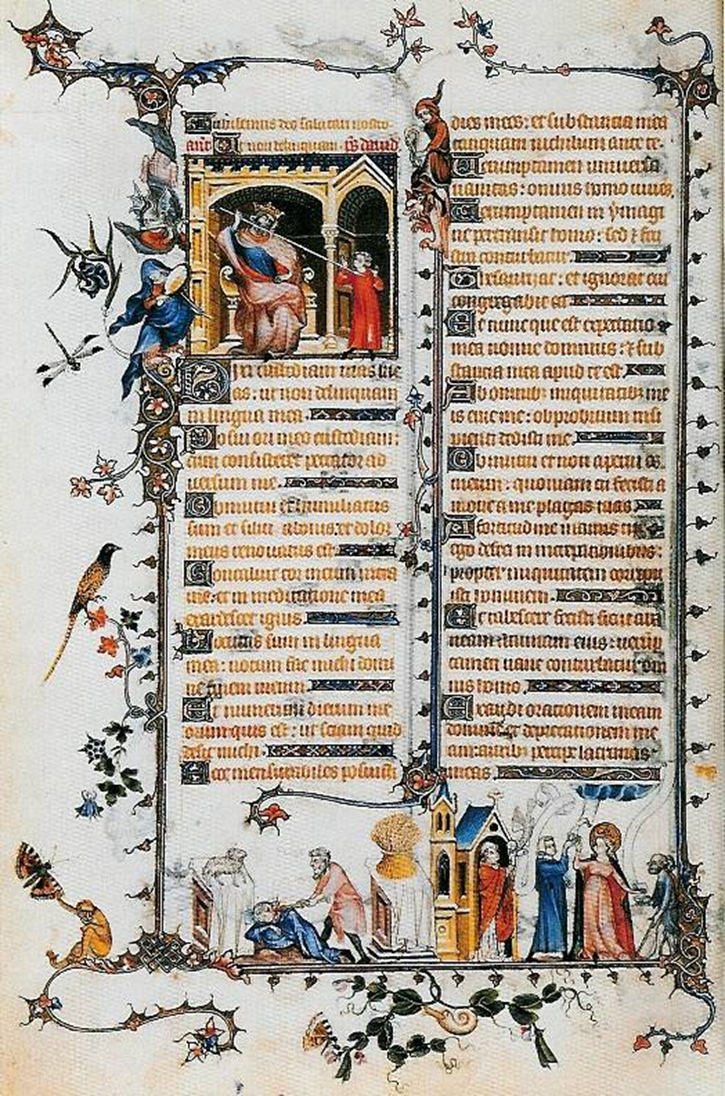 Iubilemus deo salutari nostro.
ant Ut non delinquam. ps dauid
Dixi custodiam uias me
as: ut non delinquam
in lingua mea.
Posui ori meo custodiam:
cum consisteret peccator ad
uersum me.
Obmutui et humiliatus
sum et silui a bonis: et dolor
meus renouatus est.
Concaluit cor meum intra
me: et in meditatione mea
exardescet ignis.
Locutus sum in lingua
mea: notum fac michi domi
ne finem meum.
Et numerum dierum me
orum quis est: ut sciam quid
desit michi.
Ecce mensurabiles posuisti
dies meos: et substancia mea
tanquam nichilum ante te.
Uerumptamen uniuersa
uanitas: omnis homo uiuens.
Uerumptamen in ymagi
ne pertransit homo: sed et frus
tra conturbatur.
Thesaurizat: et ignorat cui
congregabit ea.
Et nunc que est expectatio
mea nonne dominus: et sub
stancia mea apud te est.
Ab omnibus iniquitatibus me
is erue me: obprobrium insi
pienti dedisti me.
Obmutui et non aperui os
meum: quoniam tu fecisti a
moue a me plagas tuas.
A fortitudine manus tue
ego defeci in increpationibus:
propter iniquitatem corripu
isti hominem.
Et tabescere fecisti sicut ara
neam animam eius: uerump
tamen uane conturbatur om
nis homo.
Exaudi orationem meam
domine et deprecationem me
am: auribus percipe lacrimas
meas.